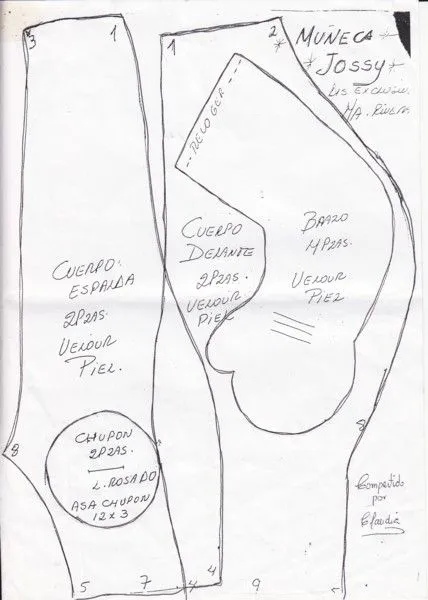 3 1
1 2
* MUÑECA *
* JOSSY *
HA. RIVERA
CUERPO DELANTE
2PZAS.
VELOUR
PIEL
BRAZO
4PZAS.
VELOUR
PIEL
CUERPO:
ESPALDA
2PZAS.
VELOUR
PIEL.
8
8
CHUPON
2PZAS.
L. ROSADO
ASA CHUPON
12 x 3
Compartido
por
Claudia
5 7 4 4 9